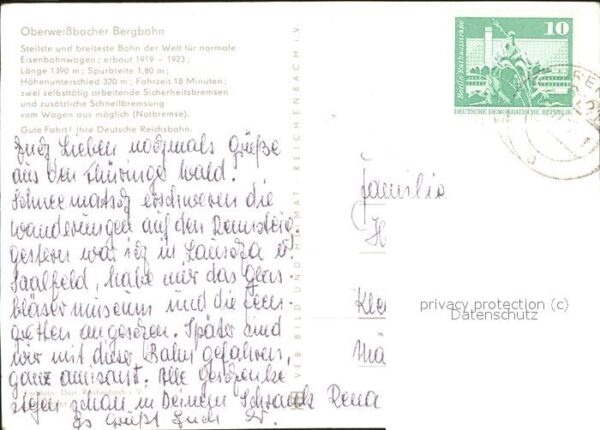 Oberweißbacher Bergbahn
Steilste und breiteste Bahn der Welt für normale
Eisenbahnwagen; erbaut 1919 – 1923;
Länge 1390 m; Spurbreite 1,80 m;
Höhenunterschied 320 m; Fahrzeit 18 Minuten;
zwei selbsttätig arbeitende Sicherheitsbremsen
und zusätzliche Schnellbremsung
vom Wagen aus möglich (Notbremse).
Gute Fahrt! Ihre Deutsche Reichsbahn.
Lieben nochmals Grüße
aus dem Thüringe Wald.
Schneematsch erschweren die
Wanderungen auf den Rennsteig.
gestern war ich in Lauscha u.
Saalfeld, habe mir das Glas-
bläsermuseum und die Feen-
grotten angesehen. Später sind
wir mit dieser Bahn gefahren,
ganz amüsant. Alle Geschenke
liegen schon in Deinem Schrank Rena
Es Grüßt Euch
VEB BILD UND HEIMAT REICHENBACH I. V.
10
Berlin, Rathausstraße
DEUTSCHE DEMOKRATISCHE REPUBLIK
Familie
H
Kle
Mä
privacy protection (c)
Datenschutz